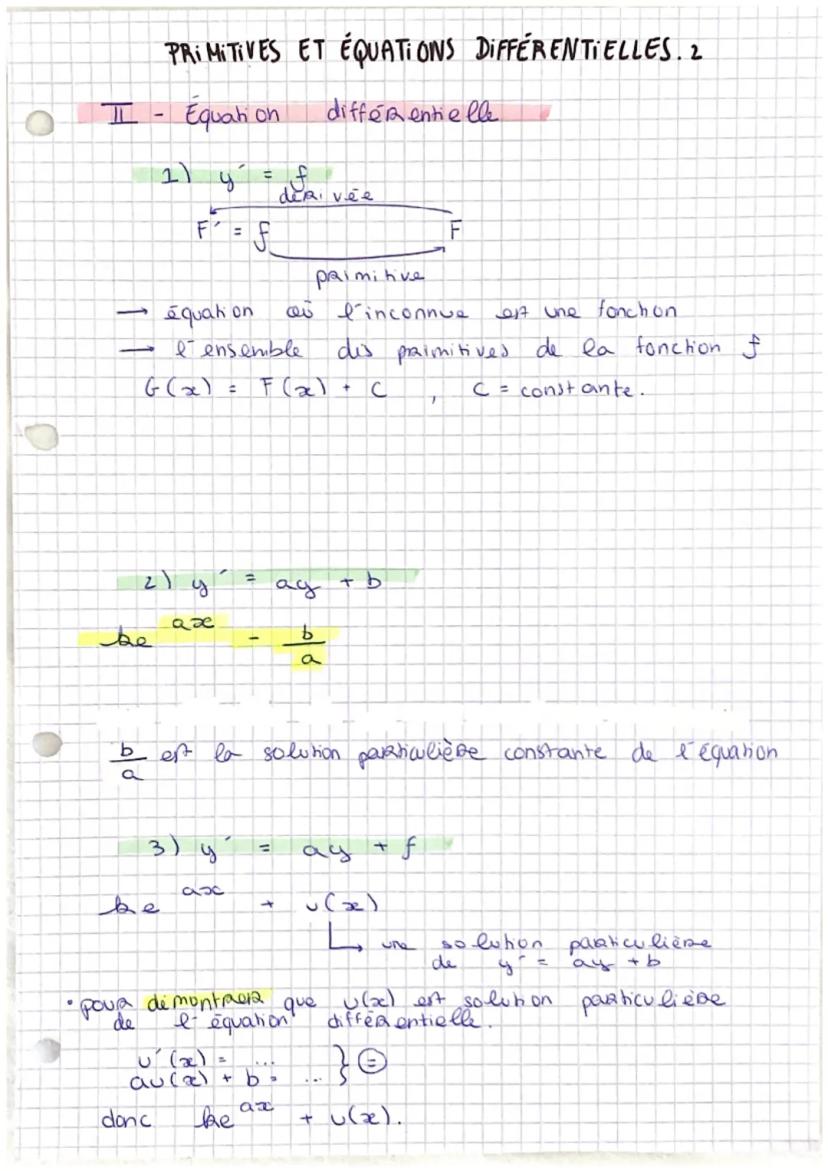 PRIMITIVES ET ÉQUATIONS DIFFÉRENTIELLES.2
II - Équation différentielle
1) y' = f
dérivée
F' = f F
primitive
→ équation où l'inconnue est une fonction
→ l'ensemble des primitives de la fonction f
G(x) = F(x) + C , C = constante.
2) y' = ay + b
ke^{ax} - b/a
b/a est la solution particulière constante de l'équation
3) y' = ay + f
ke^{ax} + u(x)
↳ une solution particulière
de y' = ay + b
• pour démontrer que u(x) est solution particulière
de l'équation différentielle.
u'(x) = ... } =
au(x) + b = ...
donc ke^{ax} + u(x).